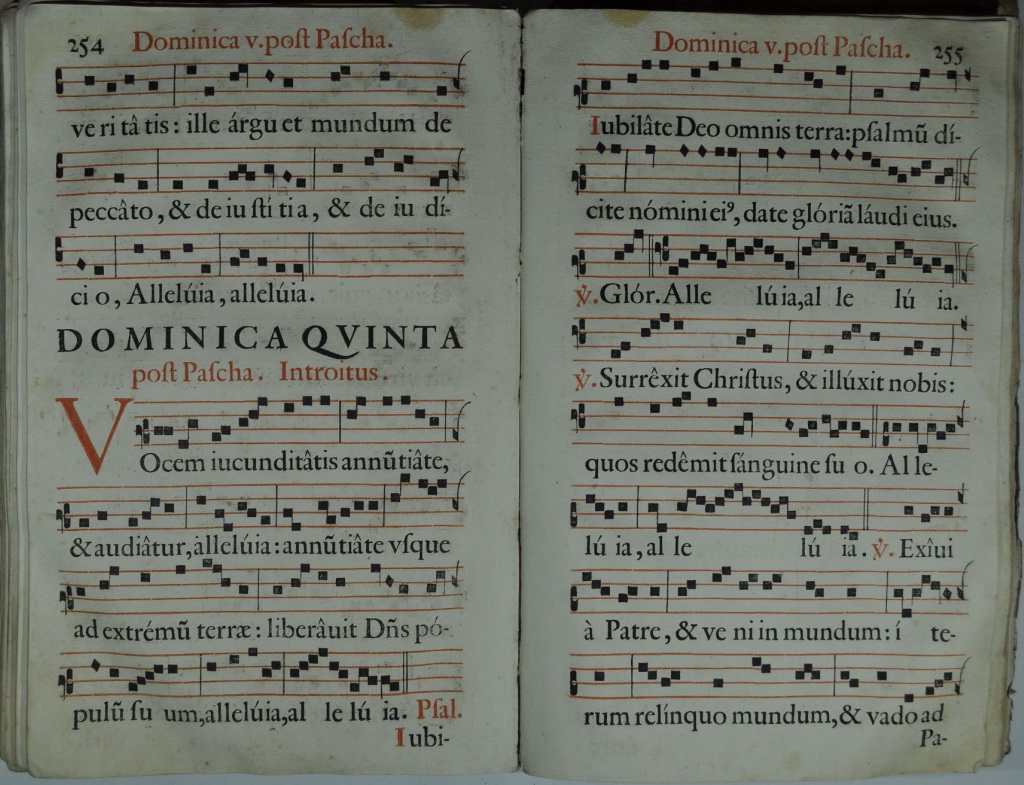 254 Dominica v. poſt Paſcha.
ve ri tâ tis: ille árgu et mundum de
peccâto, & de iu ſtí ti a, & de iu dí-
ci o, Allelúia, allelúia.
DOMINICA QVINTA
poſt Paſcha. Introitus.
VOcem iucunditâtis annũtiâte,
& audiâtur, allelúia: annũtiâte vſque
ad extrémũ terræ: liberâuit Dñs pó-
pulũ ſu um, allelúia, al le lú ia. Pſal.
Iubi-
Dominica v. poſt Paſcha. 255
Iubilâte Deo omnis terra: pſalmũ dí-
cite nómini eiꝰ, date glóriã láudi eius.
℣. Glór. Alle lú ia, al le lú ia.
℣. Surrêxit Chriſtus, & illúxit nobis:
quos redêmit ſánguine ſu o. Al le-
lú ia, al le lú ia. ℣. Exîui
à Patre, & ve ni in mundum: í te-
rum relínquo mundum, & vado ad
Pa-